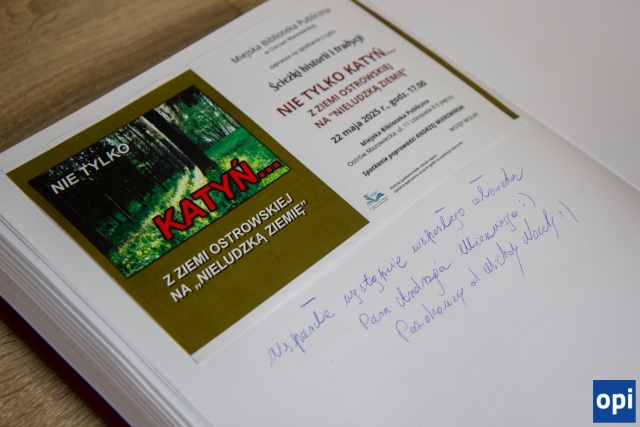 NIE TYLKO
KATYŃ...
Z ZIEMI OSTROWSKIEJ
NA „NIELUDZKĄ ZIEMIĘ”
Miejska Biblioteka Publiczna
w Ostrowi Mazowieckiej
zaprasza na spotkanie z cyklu
Ścieżki historii i tradycji
NIE TYLKO KATYŃ...
Z ZIEMI OSTROWSKIEJ
NA "NIELUDZKĄ ZIEMIĘ"
22 maja 2025 r., godz. 17.00
Miejska Biblioteka Publiczna
Ostrów Mazowiecka, ul. 11 Listopada
Spotkanie poprowadzi ANDRZEJ MIERZWIŃSKI
WSTĘP WOLNY
Wspaniałe wystąpienie wspaniałego człowieka
Pana Andrzeja :)
Pozdrawiam od :)
opi